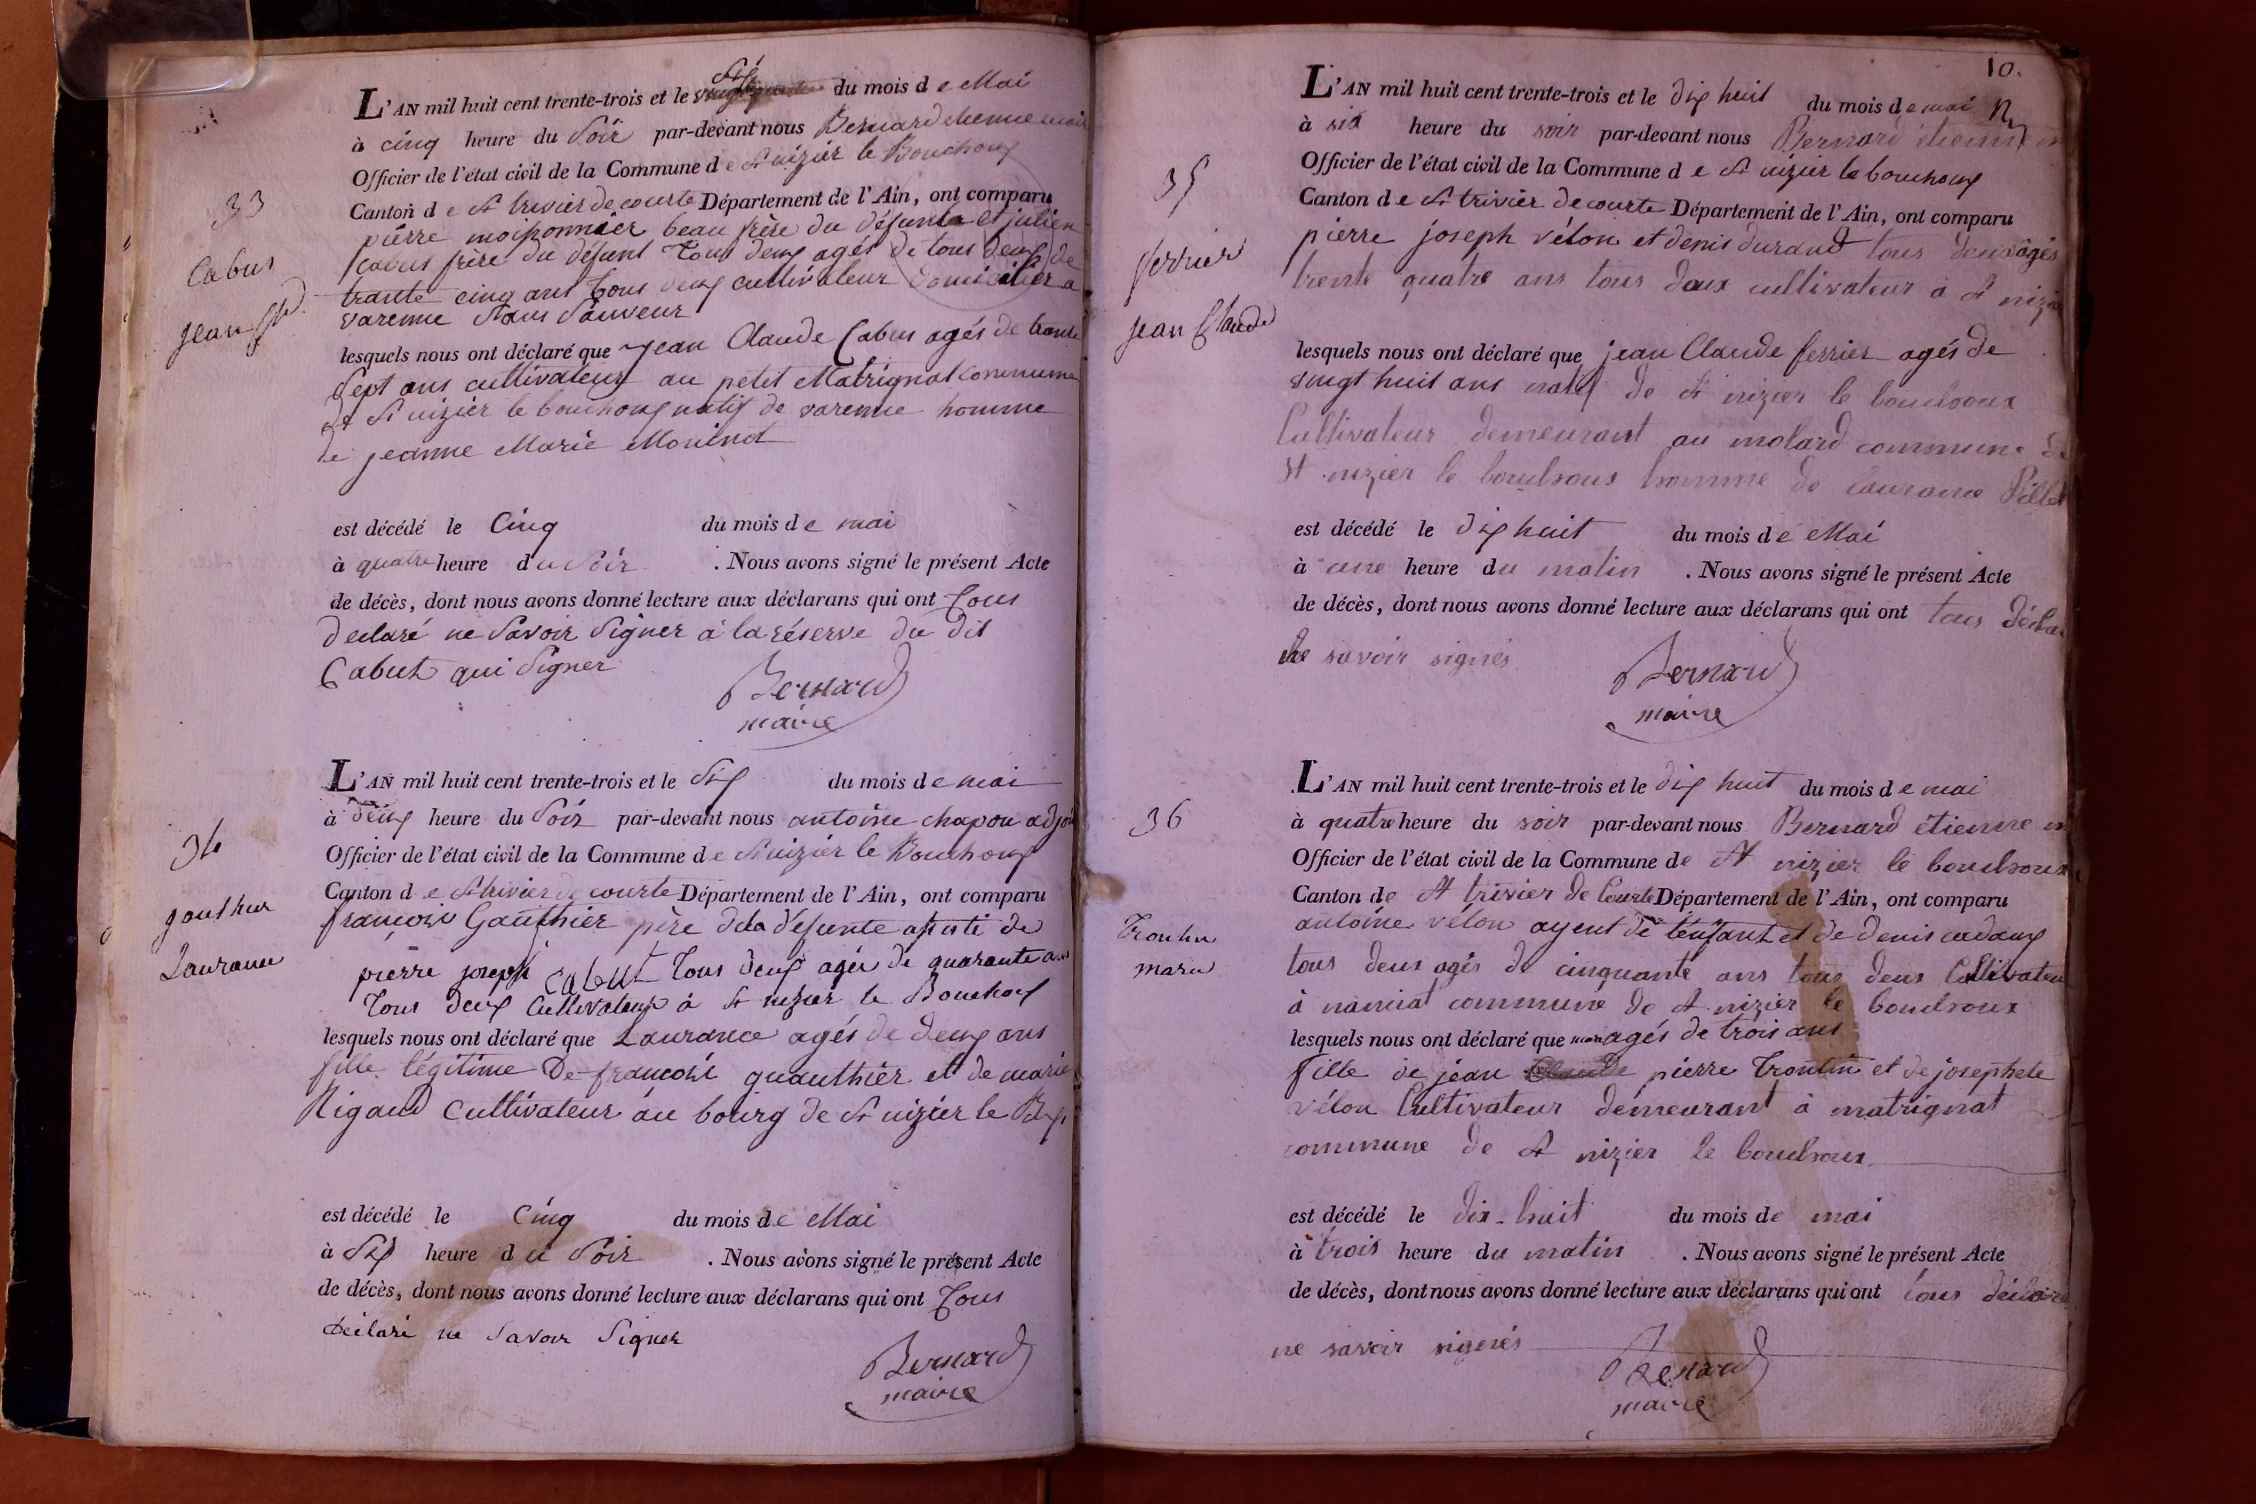 33
Cabus
jean Cl.d
L'AN mil huit cent trente-trois et le Six du mois de Mai
à cinq heure du Soir par-devant nous Bernard etienne maire
Officier de l'état civil de la Commune de St nizier le Bouchoux
Canton de St trivier de courte Département de l'Ain, ont comparu
pierre moissonnier beau frère du défunt et julien
Cabus frère du défunt Tous deux agés de tous deux de
trante cinq ans tous deux cultivateur domicilier a
varenne St Sauveur
lesquels nous ont déclaré que jean Claude Cabus agés de trante
Sept ans cultivateur au petit Matrignat commune
de St nizier le bouchoux natif de varenne homme
de jeanne Marie Monind
est décédé le Cinq du mois de mai
à quatre heure du Soir . Nous avons signé le présent Acte
de décès, dont nous avons donné lecture aux déclarans qui ont Tous
declaré ne Savoir Signer à la réserve du dit
Cabut qui Signer
Bernard
maire
34
gouthier
Laurance
L'AN mil huit cent trente-trois et le Six du mois de mai
à deux heure du Soir par-devant nous antoine chapon adjoi
Officier de l'état civil de la Commune de St nizier le Bouchoux
Canton de St trivier de courte Département de l'Ain, ont comparu
françois Gauthier père de la défunte asisté de
pierre joseph Cabut Tous deux agés de quarante ans
Tous deux Cultivateur à St nizier le Bouchoux
lesquels nous ont déclaré que Laurance agés de deux ans
fille légitime De françois guauthier et de marie
Rigaud Cultivateur au bourg de St nizier le Bx
est décédé le Cinq du mois de Mai
à Six heure du Soir . Nous avons signé le présent Acte
de décès, dont nous avons donné lecture aux déclarans qui ont Tous
déclaré ne Savoir Signer
Bernard
maire
10.
35
ferrier
jean Claude
L'AN mil huit cent trente-trois et le dix huit du mois de mai
à six heure du soir par-devant nous Bernard étienne m
Officier de l'état civil de la Commune de St nizier le bouchoux
Canton de St trivier de courte Département de l'Ain, ont comparu
pierre joseph vélon et denis durand tous deux agés
trente quatre ans tous deux cultivateur à St nizier
lesquels nous ont déclaré que jean Claude ferrier agés de
vingt huit ans natif de St nizier le bouchoux
Cultivateur demeurant au molard commune de
St nizier le bouchoux homme de laurance Pillet
est décédé le dix huit du mois de Mai
à une heure du matin . Nous avons signé le présent Acte
de décès, dont nous avons donné lecture aux déclarans qui ont tous décla
ne savoir signés
Bernard
maire
36
Trontin
marie
L'AN mil huit cent trente-trois et le dix huit du mois de mai
à quatre heure du soir par-devant nous Bernard étienne m
Officier de l'état civil de la Commune de St nizier le bouchoux
Canton de St trivier de Courte Département de l'Ain, ont comparu
antoine vélon ayent de l'enfant et de denis cadoux
tous deux agés de cinquante ans tous deux Cultivateur
à nanciat commune de St nizier le bouchoux
lesquels nous ont déclaré que marie agés de trois ans
fille de jean pierre Trontin et de josephete
vélon Cultivateur demeurant à matrignat
commune de St nizier le bouchoux
est décédé le dix-huit du mois de mai
à trois heure du matin . Nous avons signé le présent Acte
de décès, dont nous avons donné lecture aux déclarans qui ont tous déclare
ne savoir signés
Bernard
maire